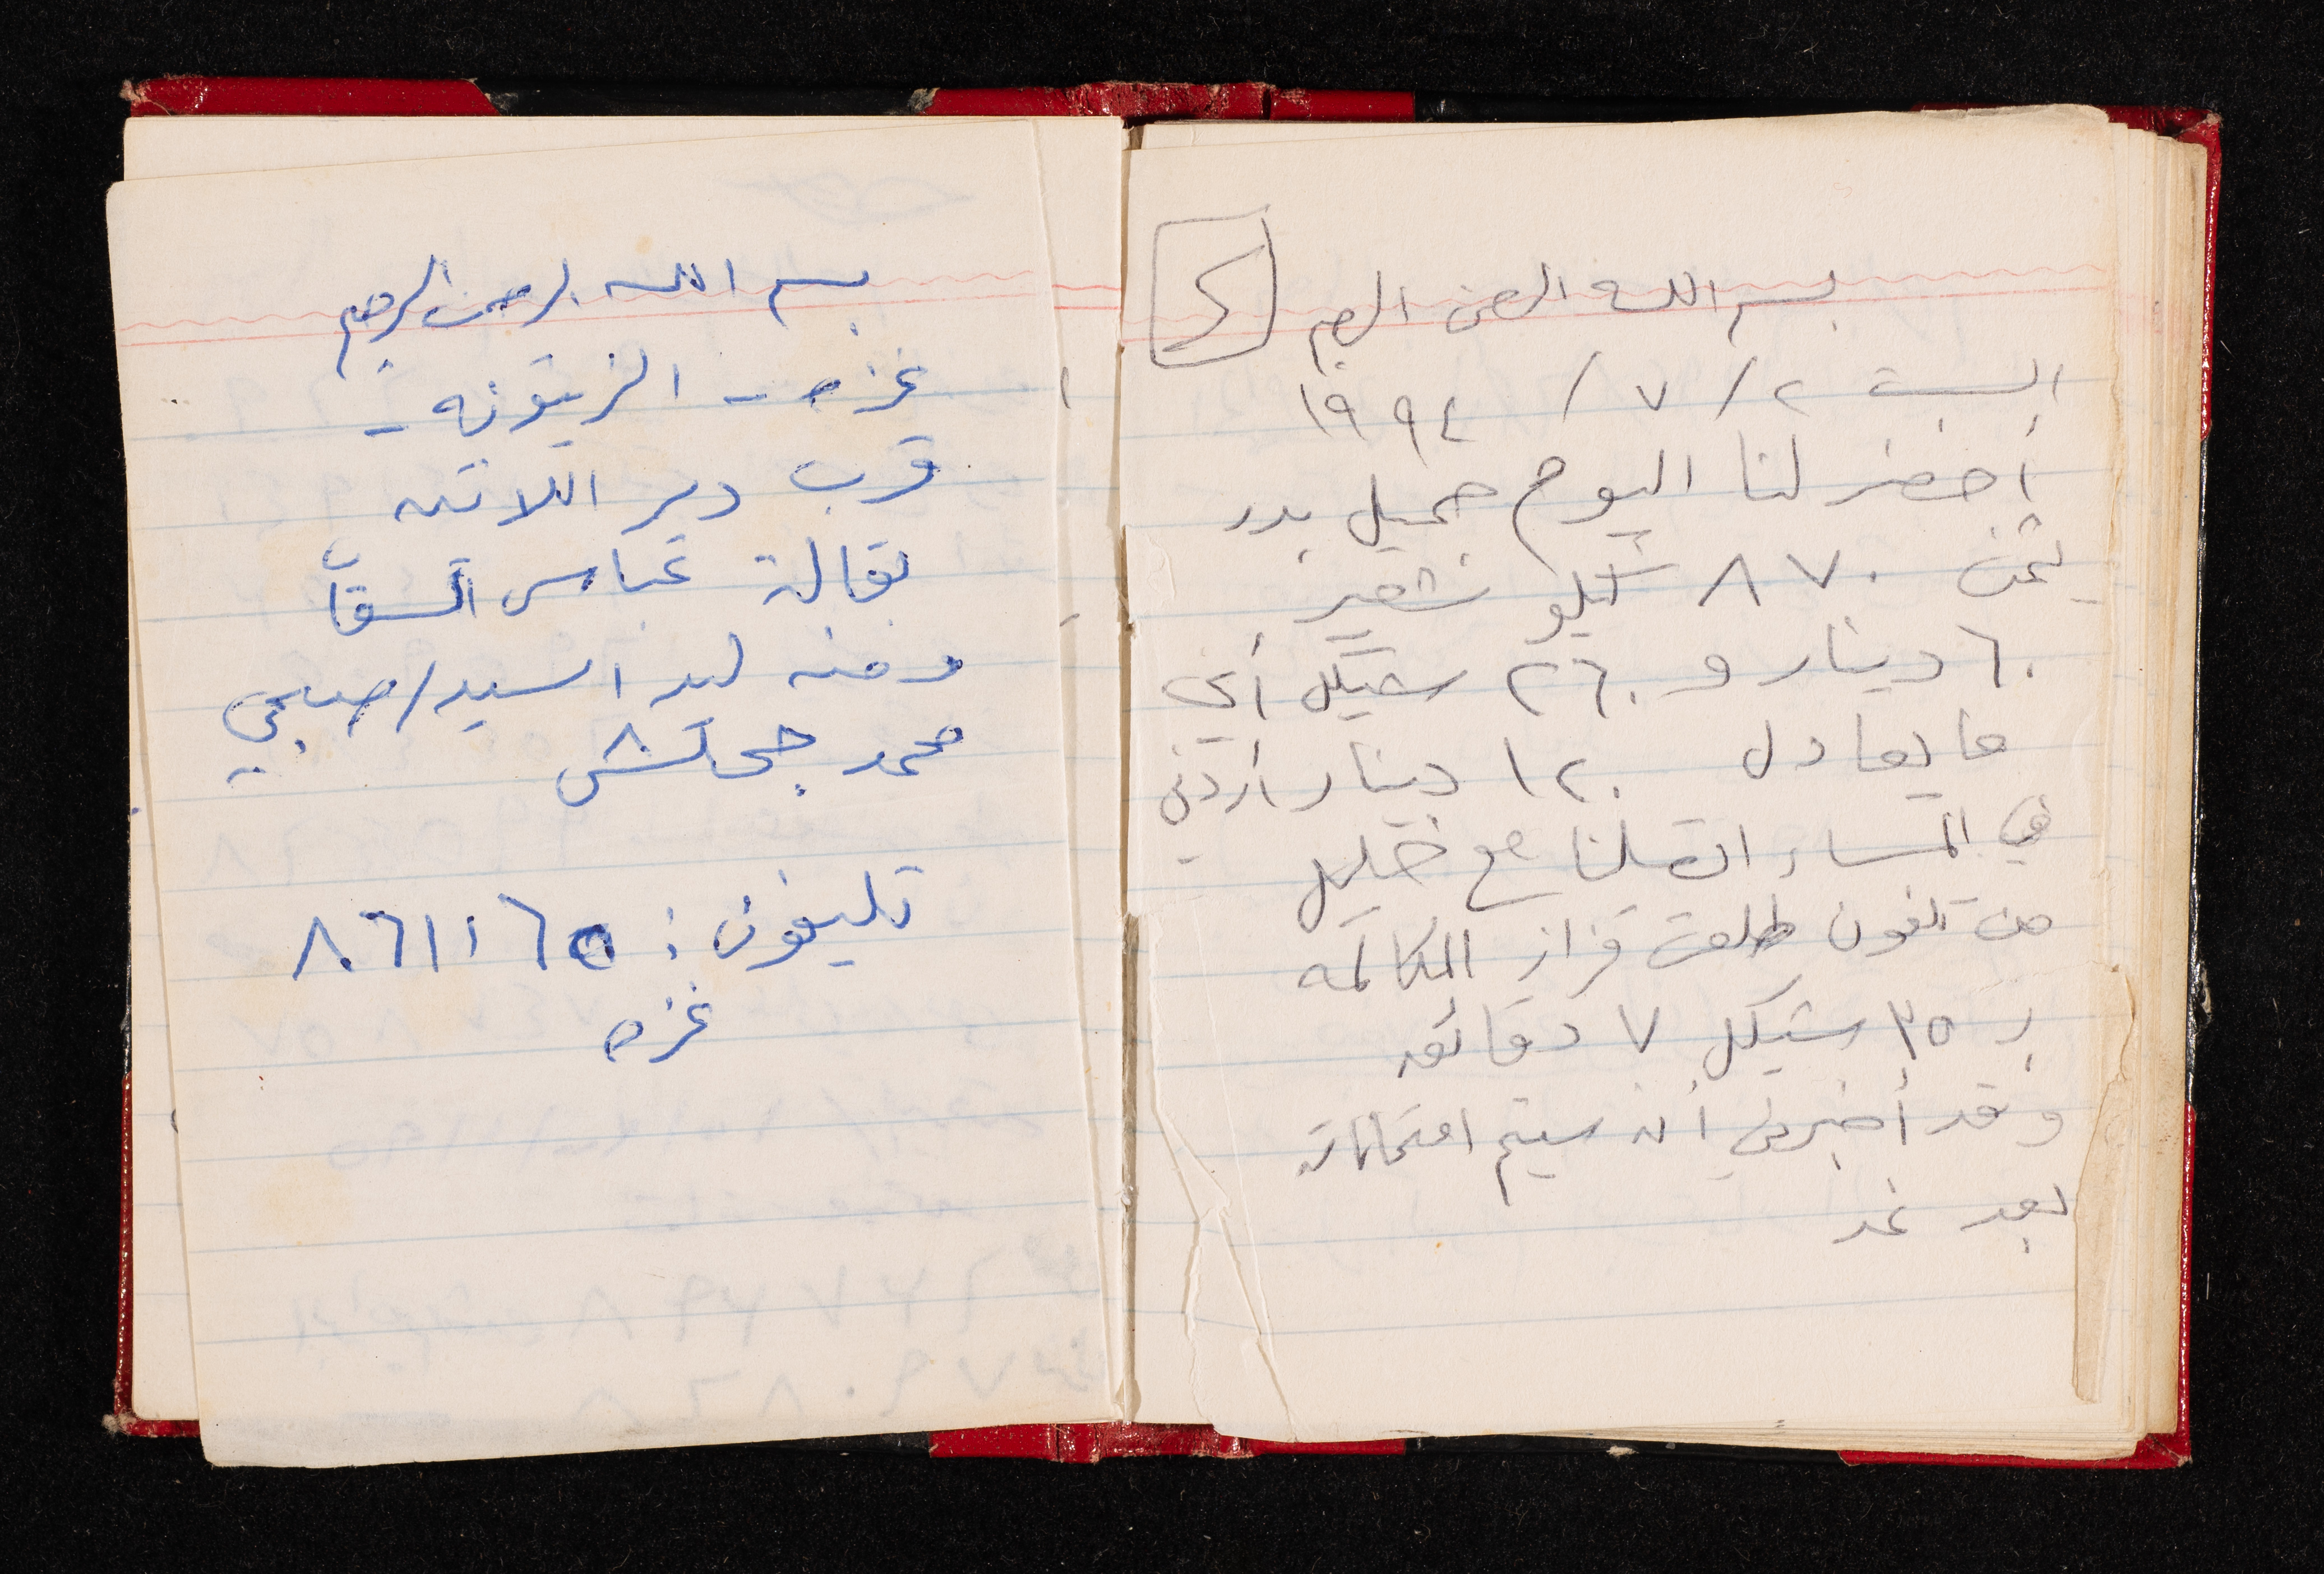 بسم الله الرحمن الرحيم
السبت ٢ / ٧ / ١٩٩٤
أحضر لنا اليوم جميل بدر
ثمن ٨٧٠ كيلو شعير
٦٠ دينار و ٢٦٠ شيكل أي
ما يعادل ١٢٠ دينار أردني
في المساء اتصلنا مع خليل
من تلفون طلعت قزاز المكالمه
بـ ٣٥ شيكل ٧ دقائق
وقد أخبرني أنه سيتم امتحاناته
بعد غد
بسم الله الرحمن الرحيم
غزه - الزيتونه -
قرب دير اللاتين
بقالة عباس السقا
ومنه ليد السيد / صبحي
محمد جحا
تليفون : ٨٦١١٦٥
غزه